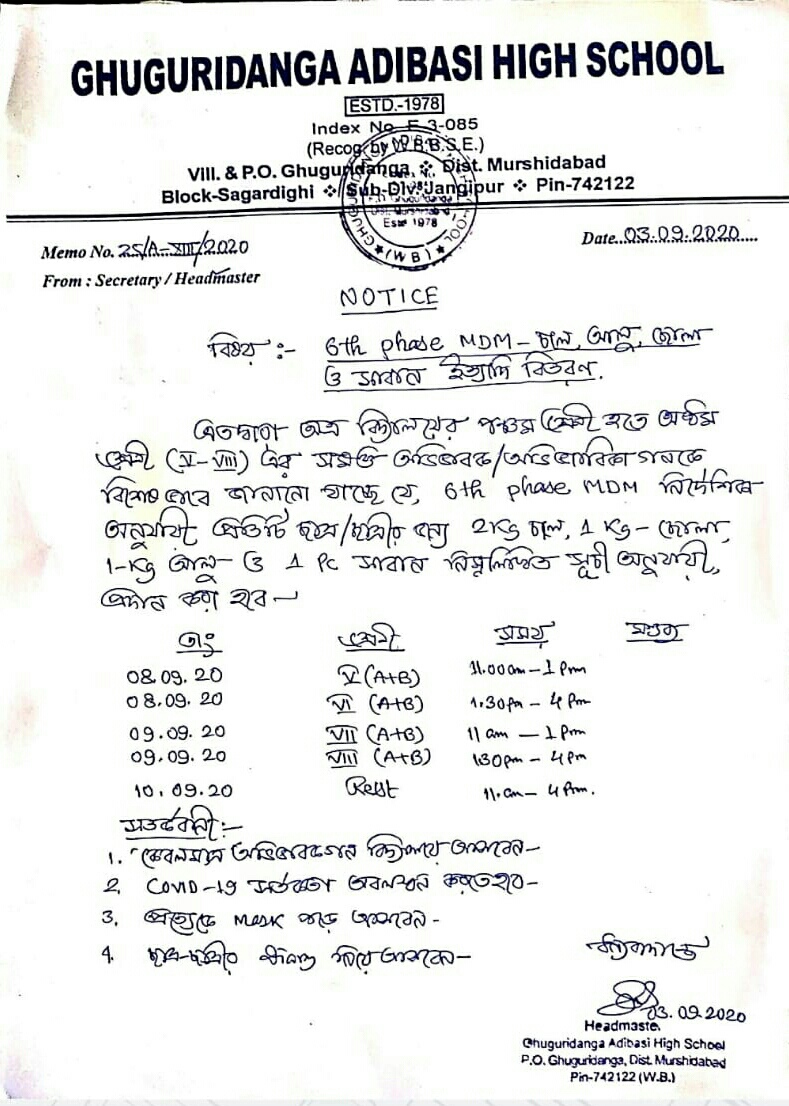 GHUGURIDANGA ADIBASI HIGH SCHOOL
ESTD.-1978
Index No E-3-085
(Recog. by W.B.B.S.E.)
Vill. & P.O. Ghuguridanga, ❖ Dist. Murshidabad
Block-Sagardighi ❖ Sub-Div. Jangipur ❖ Pin-742122
Estd 1978
(W B)
Memo No. 25/A-XIII/2020
Date..03.09.2020....
From : Secretary / Headmaster
NOTICE
বিষয় :- 6th phase MDM - চাল, আলু, ছোলা
ও সাবান ইত্যাদি বিতরণ.
এতদ্বারা অত্র বিদ্যালয়ের পঞ্চম শ্রেণী হতে অষ্টম
শ্রেণী (V-VIII) এর সমস্ত অভিভাবক/অভিভাবিকাগনকে
বিশেষভাবে জানানো যাচ্ছে যে, 6th phase MDM নির্দেশিকা
অনুযায়ী প্রতিটি ছাত্র/ছাত্রীর জন্য 2Kg চাল, 1 Kg - ছোলা,
1-Kg আলু ও 1 Pc সাবান নিম্নলিখিত সূচী অনুযায়ী,
প্রদান করা হবে -
তাং শ্রেণী সময় মন্তব্য
08.09.20 V (A+B) 11.00am - 1 Pm
08.09.20 VI (A+B) 1.30pm - 4 Pm
09.09.20 VII (A+B) 11 am - 1 Pm
09.09.20 VIII (A+B) 130pm - 4 Pm
10.09.20 Rest 11.am - 4 Pm.
সতর্কবানী :-
1. কেবলমাত্র অভিভাবকগন বিদ্যালয়ে আসবেন-
2. COVID-19 সর্তকতা অবলম্বন করতে হবে-
3. প্রত্যেকে Mask পড়ে আসবেন -
4. ছাত্র-ছাত্রীর নিয়ে আসবেন-
ধন্যবাদান্তে
03.09.2020
Headmaster
Ghuguridanga Adibasi High School
P.O. Ghuguridanga, Dist. Murshidabad
Pin-742122 (W.B.)